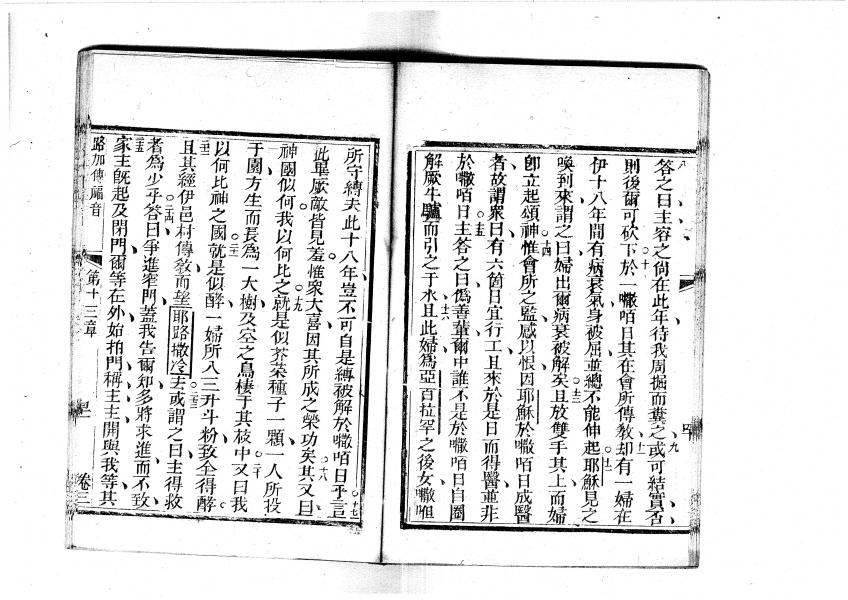 答之曰主容之尙在此年待我周掘而糞之或可結實否
則後爾可砍下於一嗽咟日其在會所傳敎却有一婦在
伊十八年間有病衰氣身被屈並總不能伸起耶穌見之
喚到來謂之曰婦出爾病衰被解矣且放雙手其上而婦
卽立起頌神惟會所之監感以恨因耶穌於嗽咟日成醫
者故謂衆曰有六箇日宜行工且來於是日而得醫並非
於嗽咟日主答之曰僞善輩爾中誰不是於嗽咟日自圈
解厥牛驢而引之于水且此婦爲亞百拉罕之後女嗽咀
所守縛夫此十八年豈不可自是縛被解於嗽咟日乎言
此畢厥敵皆見羞惟衆大喜因其所成之榮功矣其又曰
神國似何我以何比之就是似芥菜種子一顆一人所投
于園方生而長爲一大樹及空之鳥棲于其枝中又曰我
以何比神之國就是似酵一婦所入三升斗粉致全得酵
且其經伊邑村傳敎而望耶路撒冷去或謂之曰主得救
者爲少乎答曰爭進窄門蓋我告爾知多將求進而不致
家主旣起及閉門爾等在外始拍門稱主主開與我等其
路加傳福音 第十三章 卷三